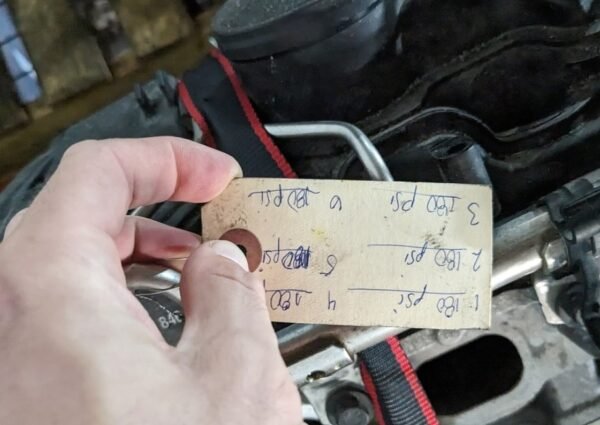 1 180 psi 4 180
2 180 psi 5 180 psi
3 180 psi 6 180 psi